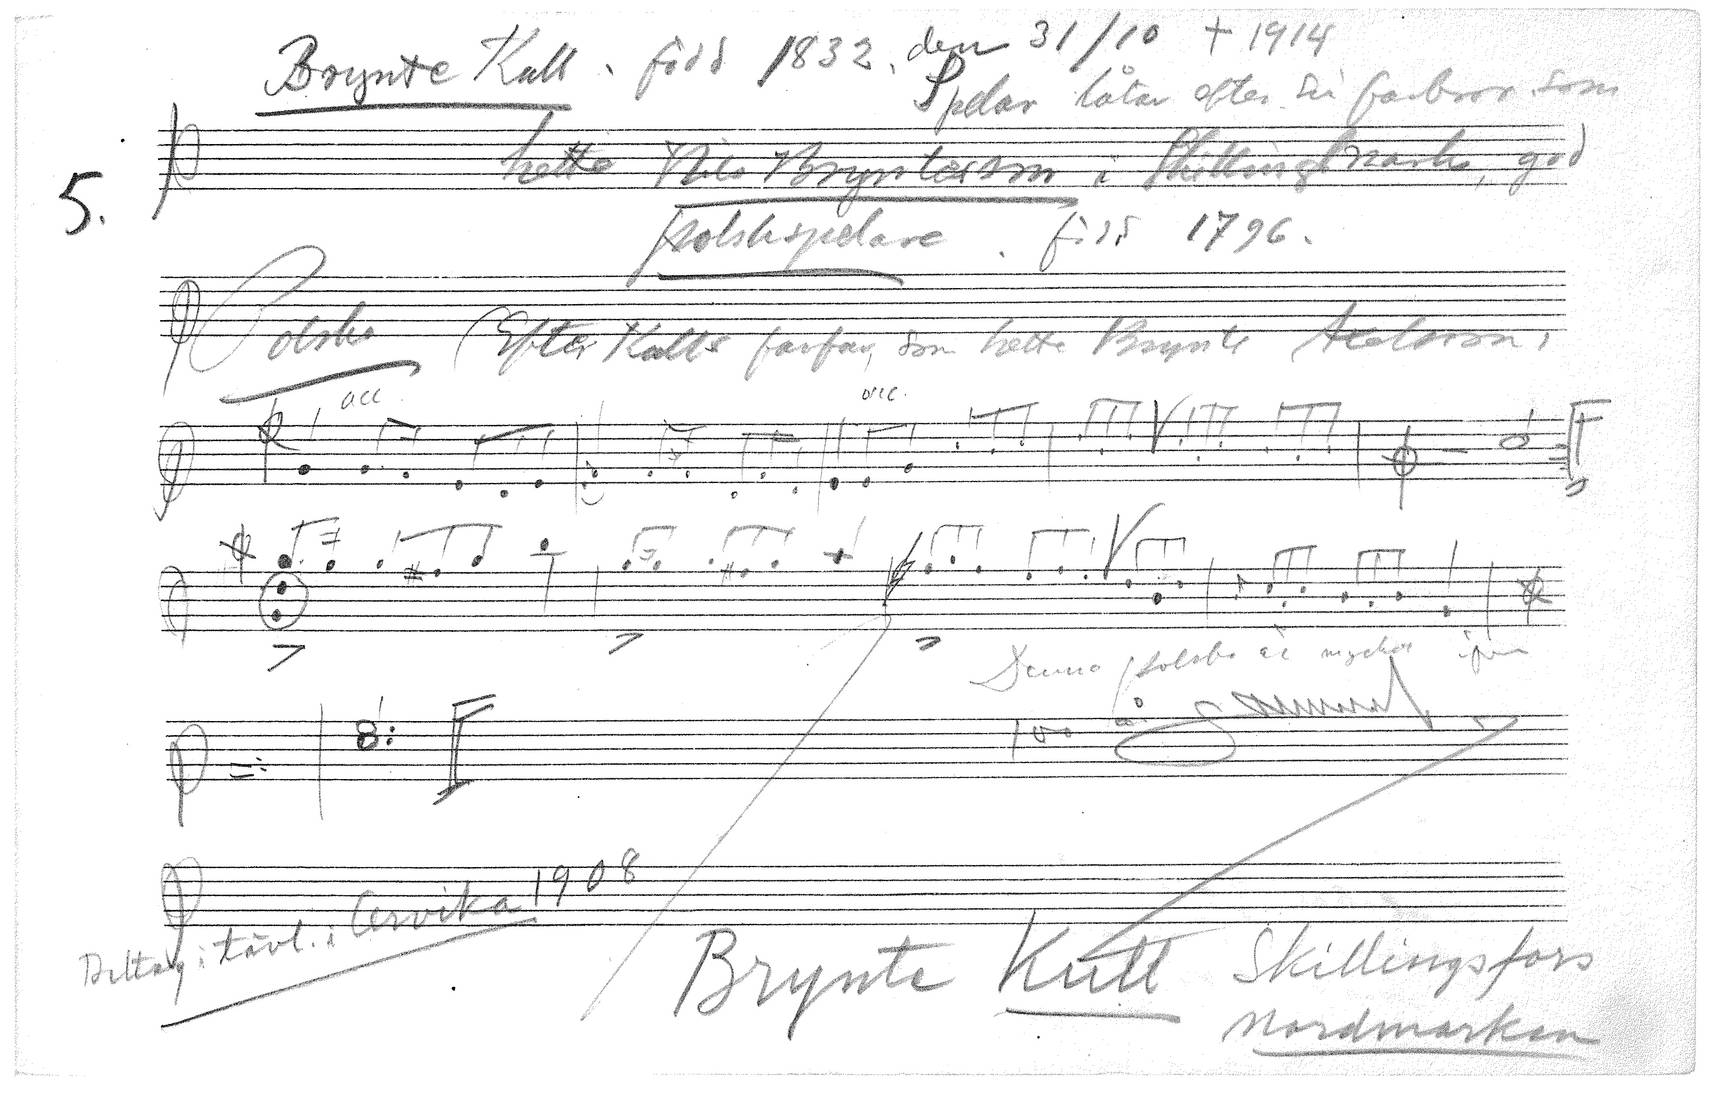 Brynte Kull. född 1832. den 31/10 + 1914
Spelar låtar efter sin farbror som
hette Nils Bryntesson i Skillingmark, god
5.
polskspelare. född 1796.
Polska (Efter Kulls farfar, som hette Brynte Axelsson.
acc.
acc.
Denna polska är mycket
100 år gammal
Deltag i tävl. i Arvika 1908
Brynte Kull Skillingsfors
Nordmarken